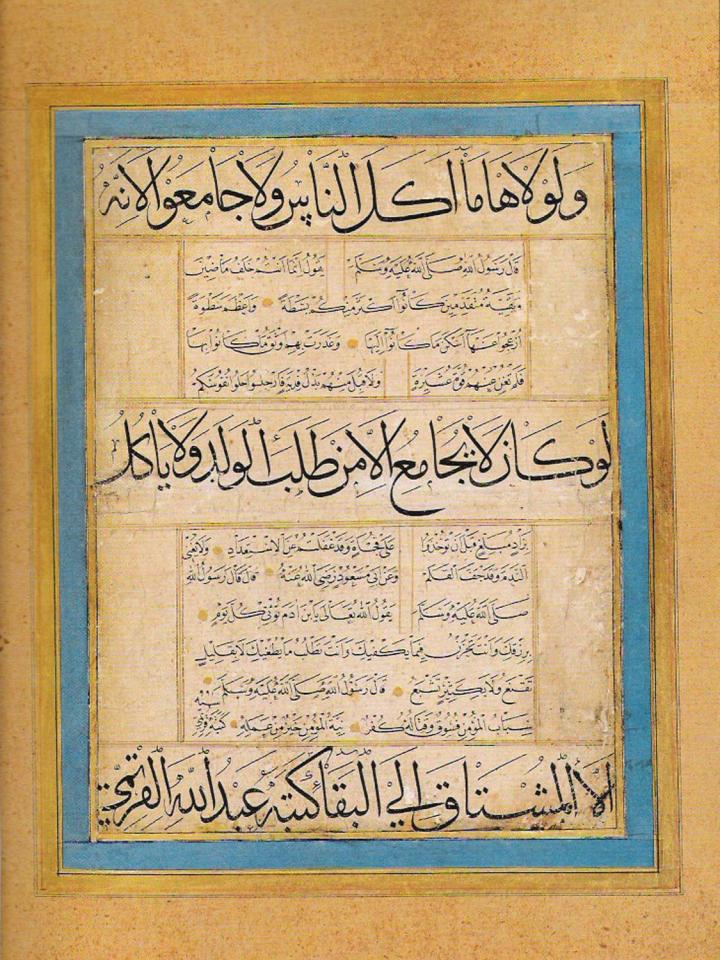 ولولاهما ما اكل الناس ولا جامعوا لانه
قال رسول الله صلى الله عليه وسلم يقول انما انتم خلف ماضين
وبقية متقدمين كانوا اكثر منكم بسطة واعظم سطوة
ازعجوا عنها اسكن ما كانوا اليها وغدرت بهم اوثق ما كانوا بها
فلم تغن عنهم قوة عشيرة ولا قبل منهم بذل فدية فارحلوا نفوسكم
لو كان لا يجامع الا من طلب الولد ولا ياكل
بزاد مبلغ قبل ان تؤخذوا على فجاءة وقد غفلتم عن الاستعداد ولا يغني
الندم وقد جف القلم وعن ابي مسعود رضي الله عنه قال قال رسول الله
صلى الله عليه وسلم يقول الله تعالى يا ابن ادم تؤتى كل يوم
برزقك وانت تحزن فيما يكفيك وانت تطلب ما يطغيك لا بقليل
تقنع ولا بكثير تشبع قال رسول الله صلى الله عليه وسلم
سباب المؤمن فسوق وقتاله كفر نية المؤمن خير من عمله كتبه قريمي
الا المشتاق الى البقا كتبه عبد الله القريمي